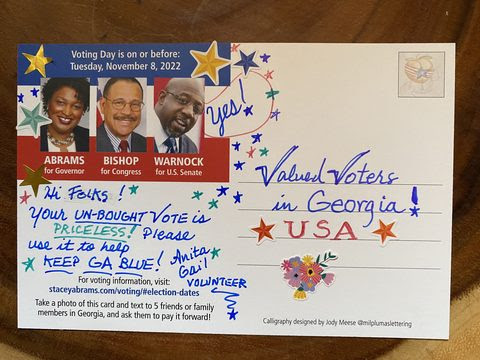 Voting Day is on or before:
Tuesday, November 8, 2022
ABRAMS
for Governor
BISHOP
for Congress
WARNOCK
for U.S. Senate
Yes!
Hi Folks!
Your UN-BOUGHT VOTE is
PRICELESS! Please
use it to help
KEEP GA BLUE!
Anita
Gail
VOLUNTEER
For voting information, visit:
staceyabrams.com/voting/#election-dates
Take a photo of this card and text to 5 friends or family
members in Georgia, and ask them to pay it forward!
Valued Voters
in Georgia!
USA
Calligraphy designed by Jody Meese @milplumaslettering